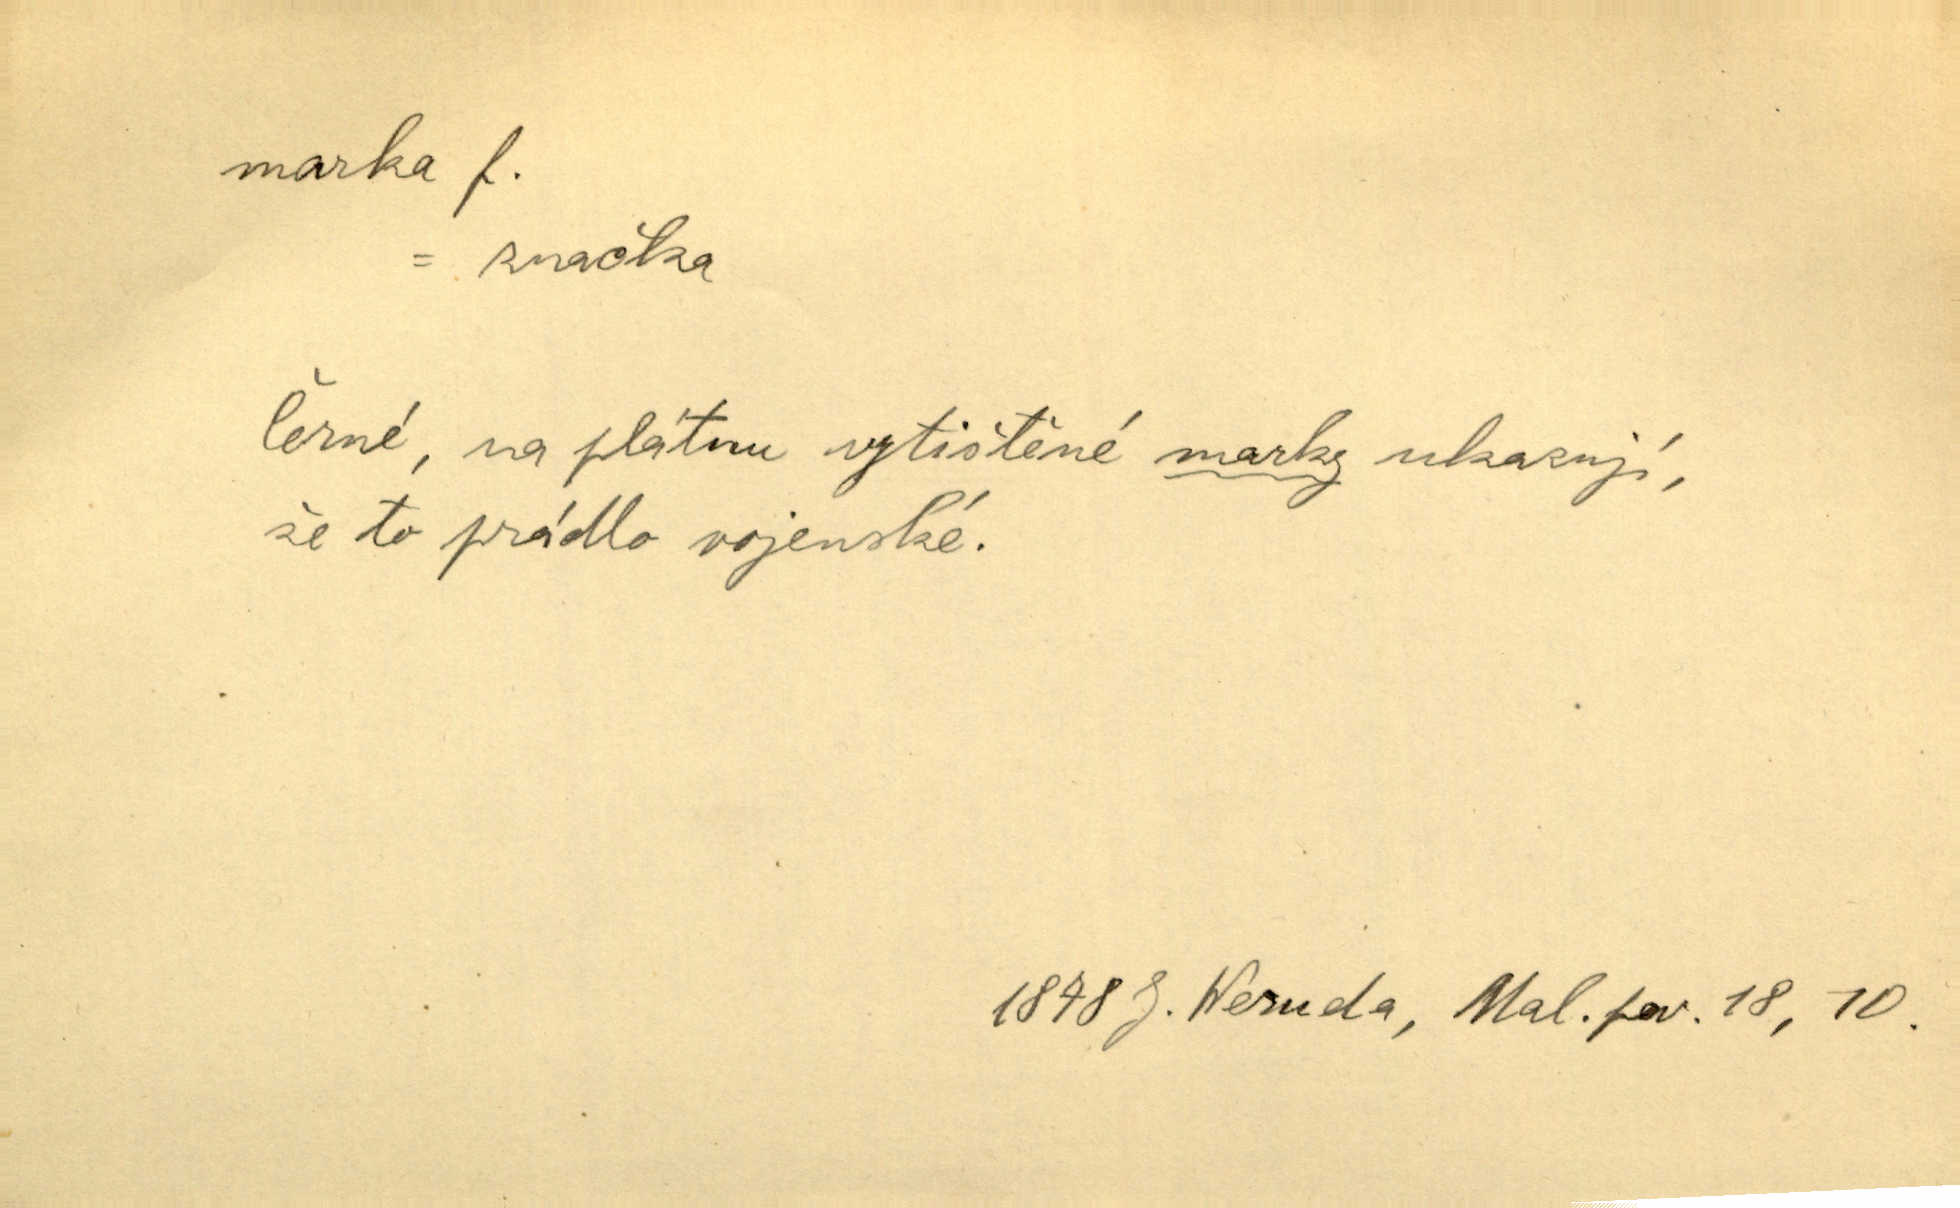 marka f.
= značka
Černé, na plátnu vytištěné marky ukazují,
že to prádlo vojenské.
1878 J. Neruda, Mal. pov. 18, 10.